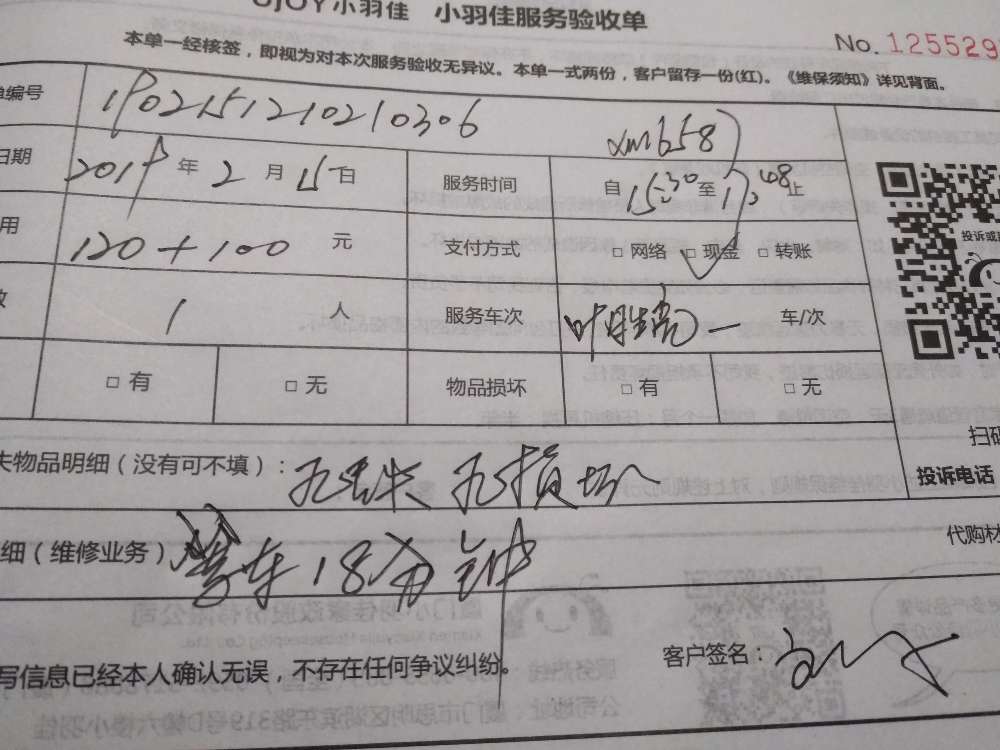 OJOY小羽佳 小羽佳服务验收单
No. 125529
本单一经核签，即视为对本次服务验收无异议。本单一式两份，客户留存一份(红)。《维保须知》详见背面。
单编号 1902151210210306 xm658
日期 2019 年 2 月 15 日 服务时间 自 15:30 至 17:48 止
用 120+100 元 支付方式 □ 网络 □ 现金 □ 转账
投诉或
1 人 服务车次 叶胜亮 一 车/次
□ 有 □ 无 物品损坏 □ 有 □ 无
扫码
失物品明细（没有可不填）： 无丢失 无损坏
投诉电话
细（维修业务） 等车18分钟
代购材
写信息已经本人确认无误，不存在任何争议纠纷。 客户签名：